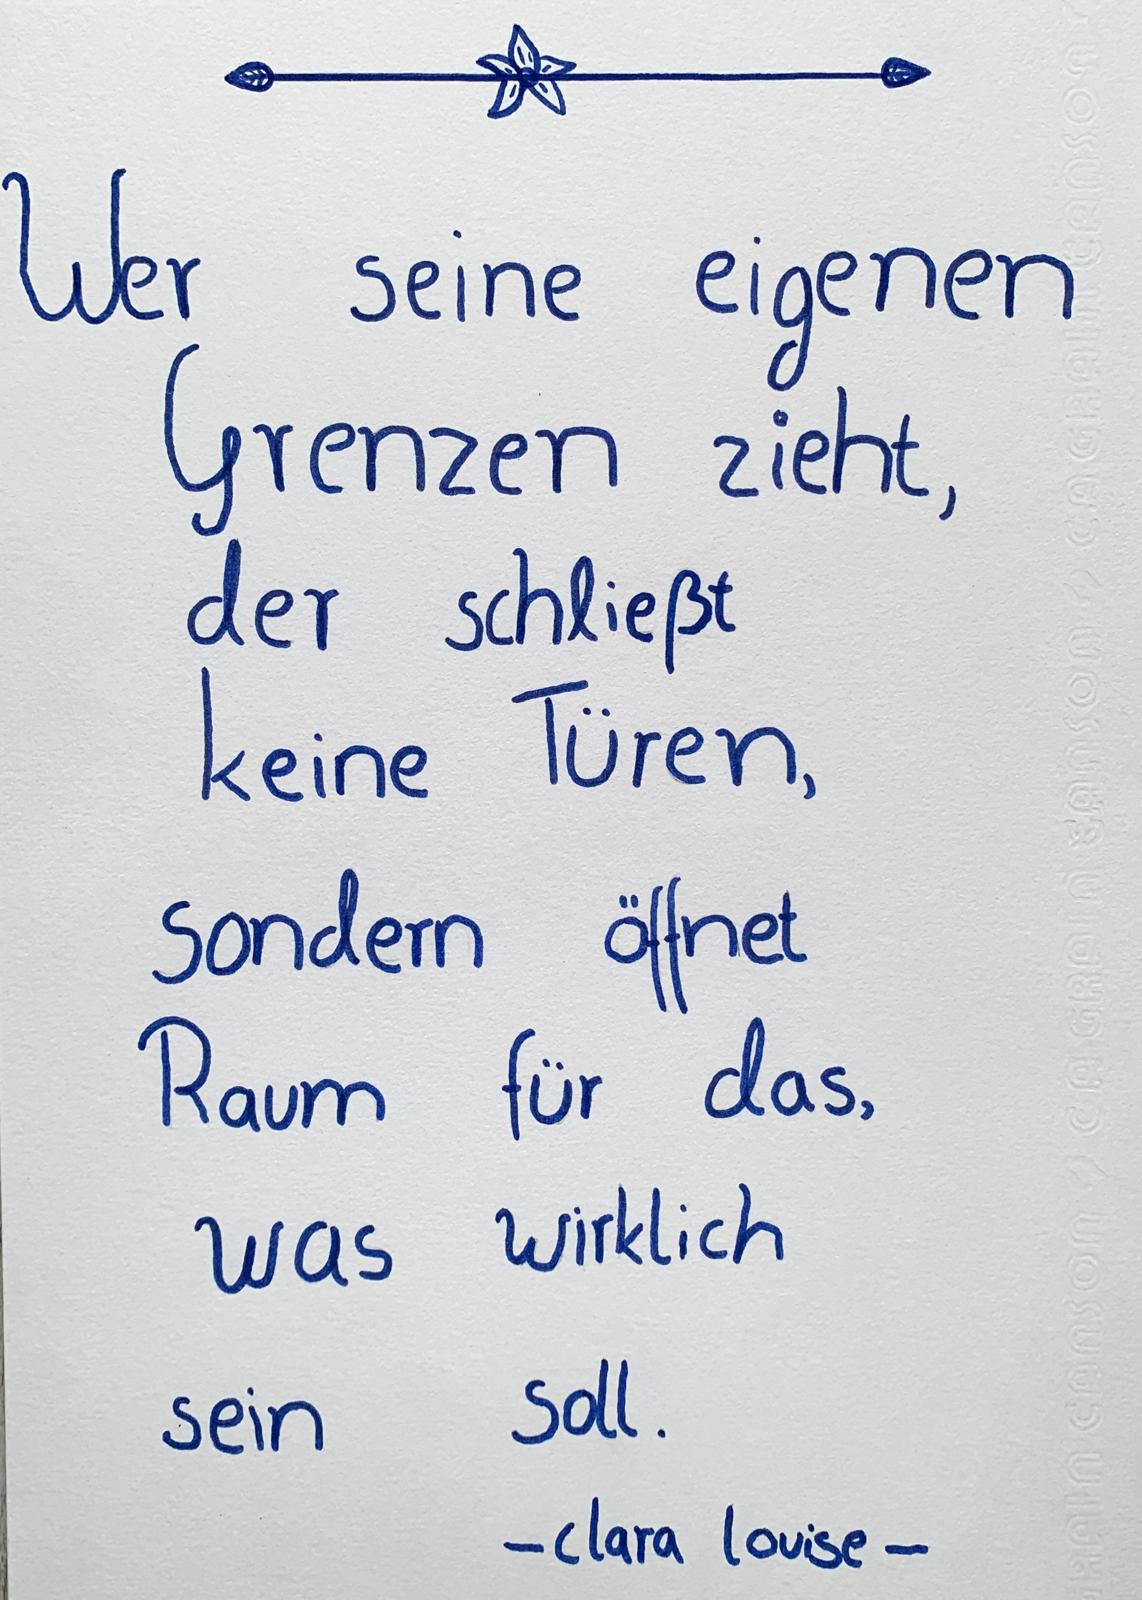 Wer seine eigenen
Grenzen zieht,
der schließt
keine Türen,
sondern öffnet
Raum für das,
was wirklich
sein soll.
– clara louise –